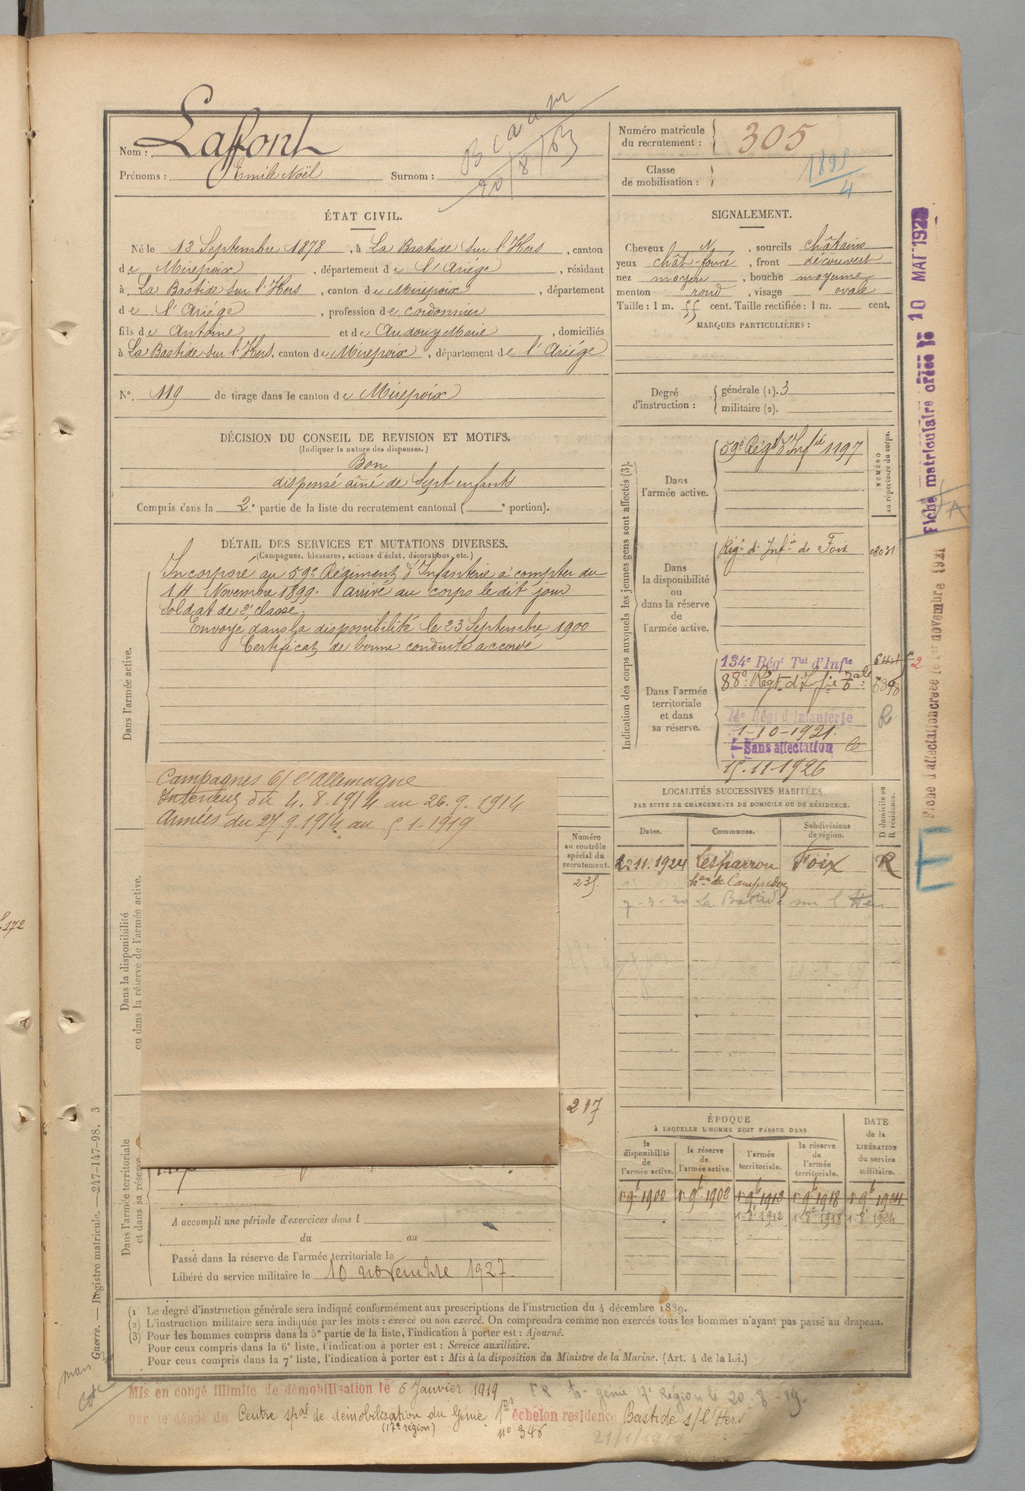 Nom : Laffont
Prénoms : Emile Noël Surnom :
20/8/63
Numéro matricule du recrutement : 305
Classe de mobilisation :
1898/4
ÉTAT CIVIL.
Né le 12 Septembre 1878, à La Bastide sur l'Hers, canton
de Mirepoix, département de l'Ariége, résidant
à La Bastide sur l'Hers, canton de Mirepoix, département
de l'Ariége, profession de cordonnier
fils de Antoine et de Audouy Marie, domiciliés
à La Bastide sur l'Hers, canton de Mirepoix, département de l'Ariége
N°. 119 de tirage dans le canton de Mirepoix
SIGNALEMENT.
Cheveux N, sourcils châtains
yeux chât-foncé, front découvert
nez moyen, bouche moyenne
menton rond, visage ovale
Taille : 1 m. 55 cent. Taille rectifiée : 1 m. cent.
MARQUES PARTICULIÈRES :
Degré d'instruction : générale (1). 3
militaire (2).
DÉCISION DU CONSEIL DE REVISION ET MOTIFS.
(Indiquer la nature des dispenses.)
Bon
dispensé aîné de Sept enfants
Compris dans la 2e partie de la liste du recrutement cantonal ( e portion).
DÉTAIL DES SERVICES ET MUTATIONS DIVERSES.
(Campagnes, blessures, actions d'éclat, décorations, etc.)
Dans l'armée active.
Incorporé au 59e Régiment d'Infanterie à compter du
14 Novembre 1899. Arrivé au corps le dit jour
Soldat de 2e classe.
Envoyé dans la disponibilité le 23 Septembre 1900
Certificat de bonne conduite accordé
Campagnes c/ l'Allemagne
Intérieur du 4.8.1914 au 26.9.1914
Armées du 27.9.1914 au 5.1.1919
Dans la disponibilité
ou dans la réserve de l'armée active.
Dans l'armée territoriale
et dans sa réserve
Numéro au contrôle spécial du recrutement.
235
217
A accompli une période d'exercices dans l
du au
Passé dans la réserve de l'armée territoriale le
Libéré du service militaire le 10 novembre 1927
Indication des corps auxquels les jeunes gens sont affectés (3).
NUMÉRO au répertoire du corps.
Dans l'armée active.
59e Régt d'Infie 1197
Dans la disponibilité ou dans la réserve de l'armée active.
Régt d'Infie de Foix
02031
Dans l'armée territoriale et dans sa réserve.
134e Régt Tal d'Infie
88e Régt d'Infie
14e Régt d'Infanterie
1-10-1921
Sans affectation
15-11-1926
R
LOCALITÉS SUCCESSIVES HABITÉES
PAR SUITE DE CHANGEMENTS DE DOMICILE OU DE RÉSIDENCE.
Dates. Communes. Subdivisions de région. D domicile ou R résidence.
22.11.1924 Lesparrou Foix R
7-3-30 La Bastide sur l'Hers
ÉPOQUE
À LAQUELLE L'HOMME DOIT PASSER DANS
DATE de la LIBÉRATION du service militaire.
la disponibilité de l'armée active.
la réserve de l'armée active.
l'armée territoriale.
la réserve de l'armée territoriale.
1r 9b 1900 1r 9b 1902 1r 9b 1913 1r 9b 1918 1r 9b 1924
(1) Le degré d'instruction générale sera indiqué conformément aux prescriptions de l'instruction du 4 décembre 1889.
(2) L'instruction militaire sera indiquée par les mots : exercé ou non exercé. On comprendra comme non exercés tous les hommes n'ayant pas passé au drapeau.
(3) Pour les hommes compris dans la 5e partie de la liste, l'indication à porter est : Ajourné.
Pour ceux compris dans la 6e liste, l'indication à porter est : Service auxiliaire.
Pour ceux compris dans la 7e liste, l'indication à porter est : Mis à la disposition du Ministre de la Marine. (Art. 4 de la loi.)
Mis en congé illimité de démobilisation le 5 Janvier 1919
Par le dépôt du Centre spal de démobilisation du Génie 1er échelon residence Bastide s/l'Hers
(17e région) no 346
Guerre. — Registre matricule. — 247-147-98. 3
Fiche matriculaire créée le 10 MAI 1929
Fiche d'affectation créée le 1er novembre 1921
E